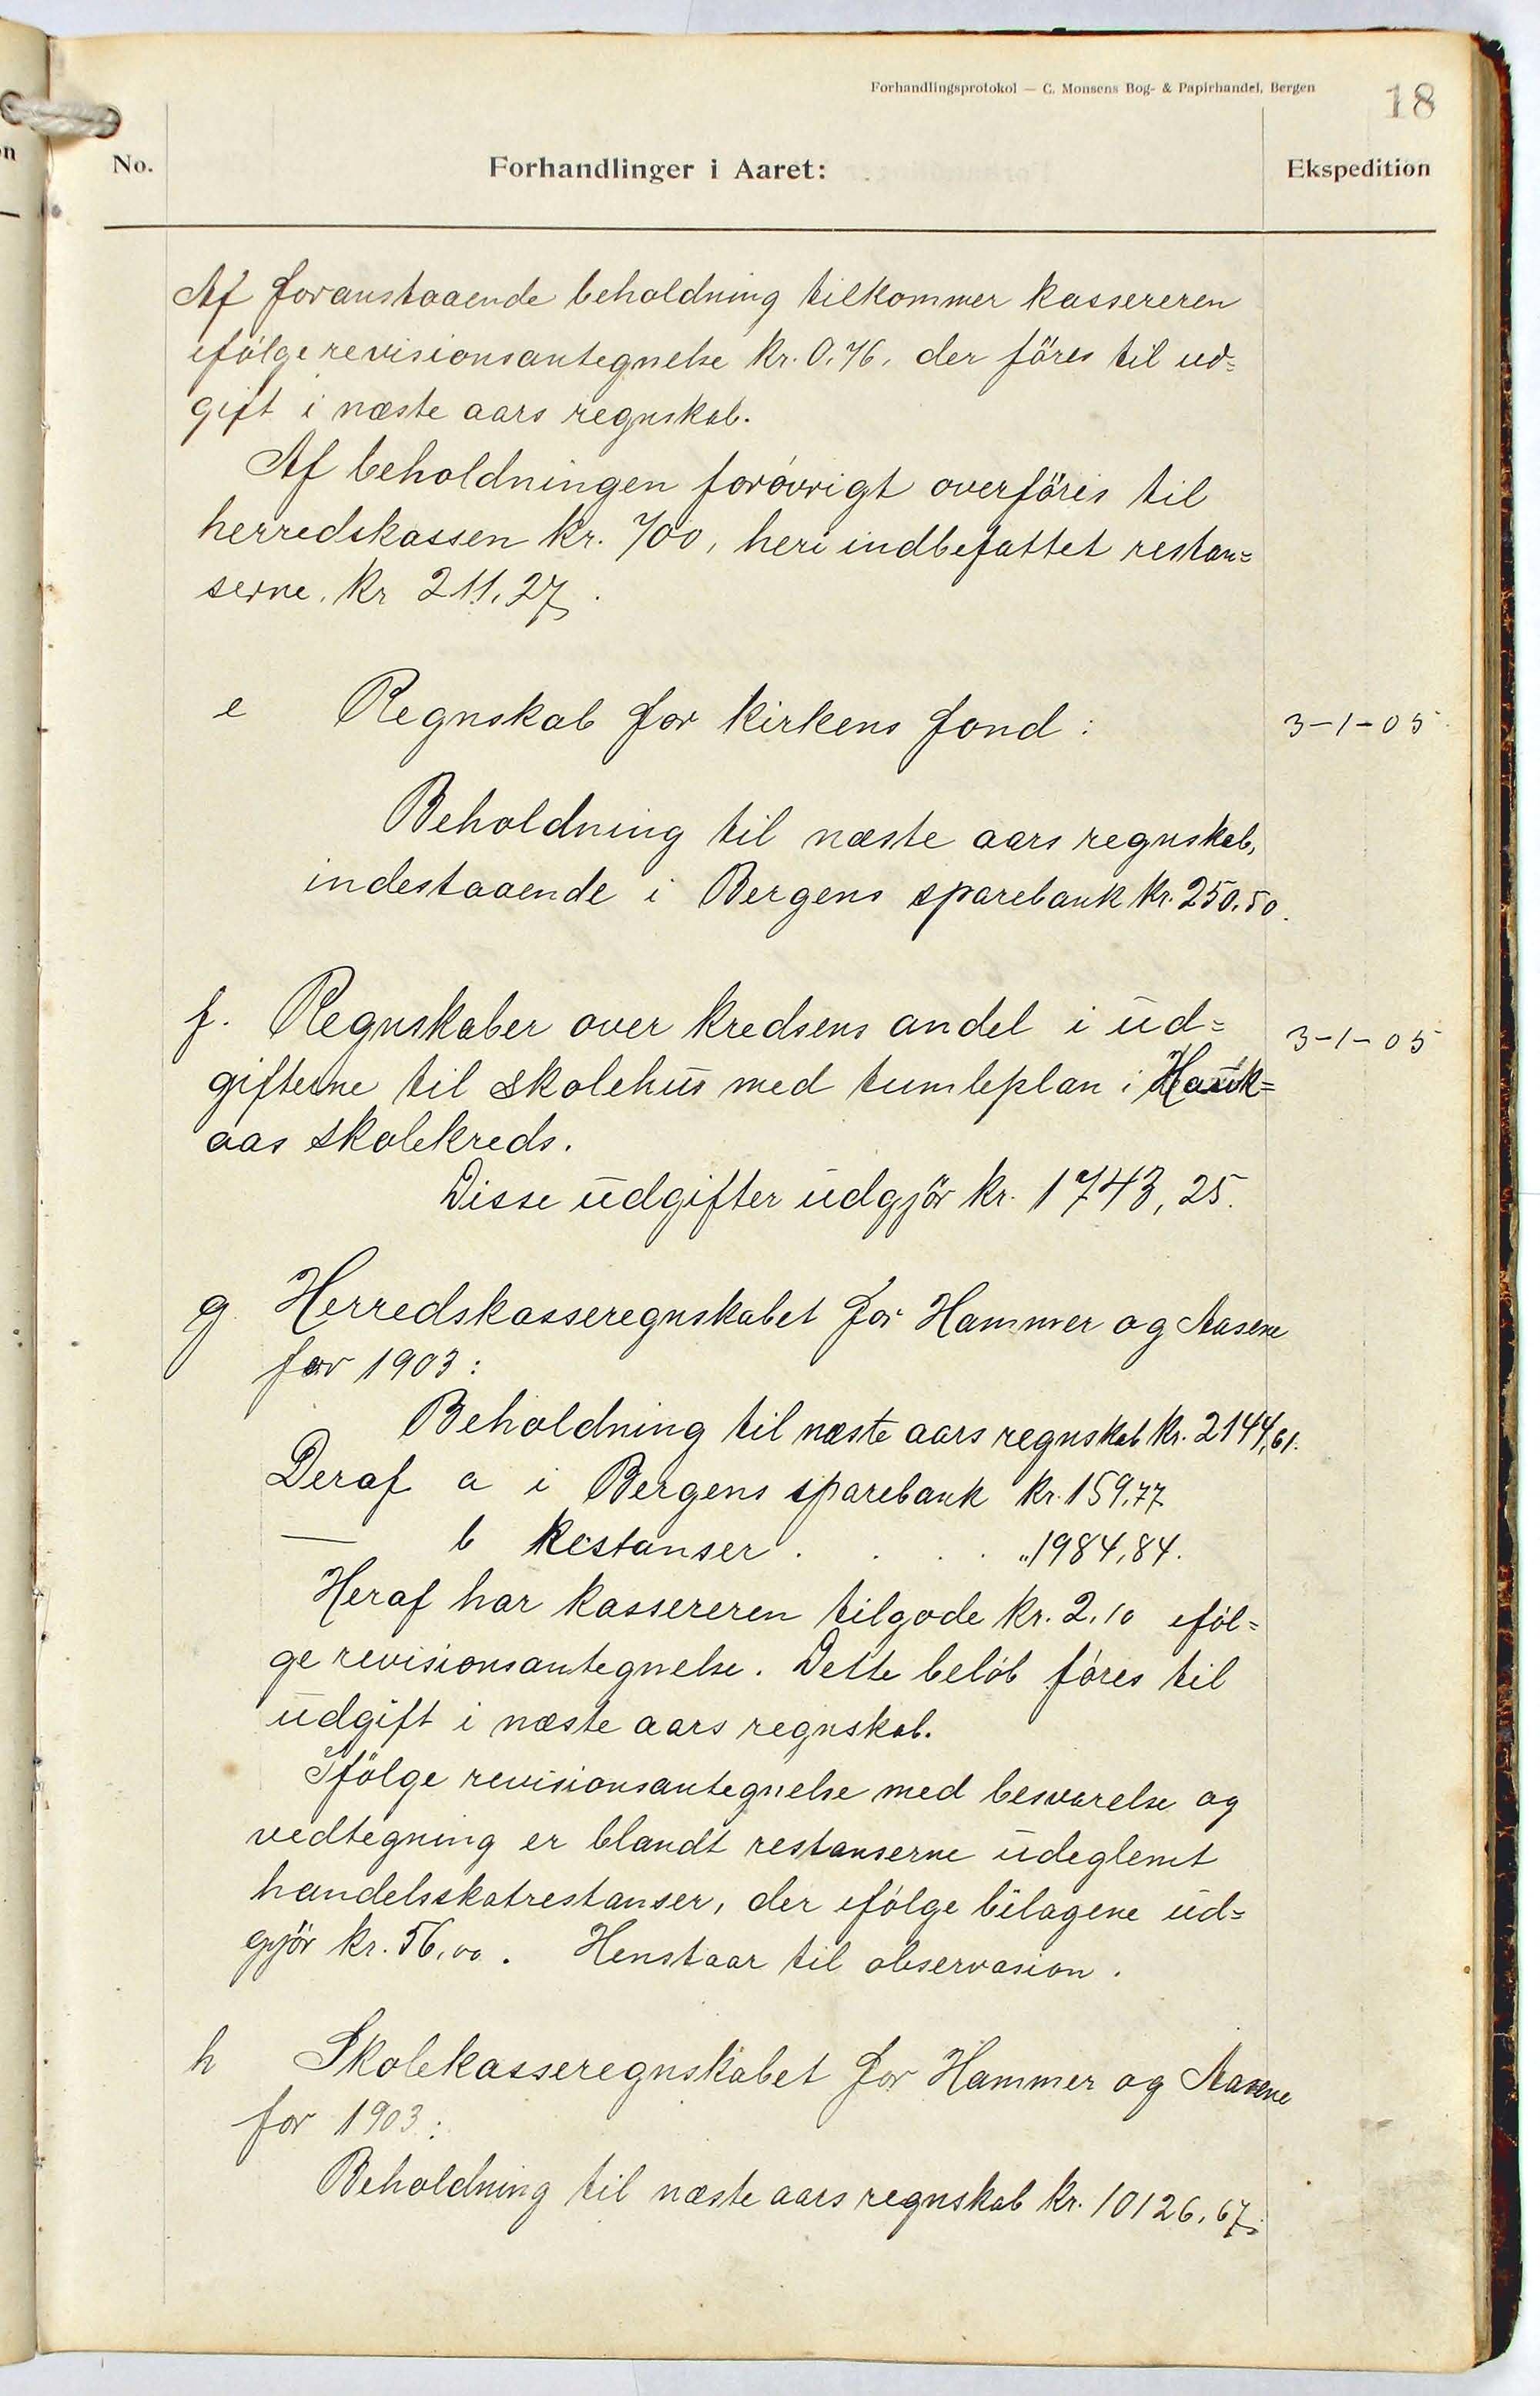 Forhandlingsprotokol — C. Monsens Bog- & Papirhandel, Bergen
18
No.
Forhandlinger i Aaret:
Ekspedition
Af foranstaaende beholdning tilkommer kassereren
ifölge revisionsantegnelse kr. 0,76, der föres til ud=
gift i næste aars regnskab.
Af beholdningen forövrigt overföres til
herredskassen kr. 700, heri indbefattet restan=
serne, kr 211,27.
e Regnskab for kirkens fond: 3-1-05
Beholdning til næste aars regnskab,
indestaaende i Bergens sparebank kr. 250,50.
f. Regnskaber over kredsens andel i ud= 3-1-05
gifterne til skolehus med tumleplan i Hauk=
aas skolekreds.
Disse udgifter udgjör kr. 1743,25.
g Herredskasseregnskabet for Hammer og Aasene
for 1903:
Beholdning til næste aars regnskab kr. 2144,61.
Deraf a i Bergens sparebank kr. 159,77
— b Restanser . . . . „ 1984,84.
Heraf har kassereren tilgode kr. 2,10 iföl=
ge revisionsantegnelse. Dette belöb föres til
udgift i næste aars regnskab.
Ifölge revisionsantegnelse med besvarelse og
vedtegning er blandt restanserne udeglemt
handelsskatrestanser, der ifölge bilagene ud=
gjör kr. 56,00. Henstaar til observasion.
h Skolekasseregnskabet for Hammer og Aasene
for 1903:
Beholdning til næste aars regnskab kr. 10126,67.